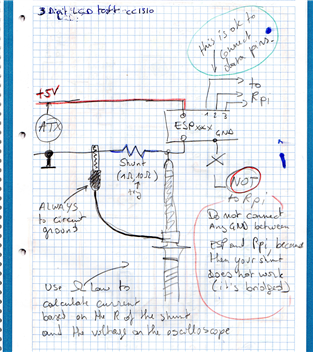 3 Digit LCD
this is ok to
connect
data pins.
+5V
1 2 3
to
RPi
ATX
ESPxxx
GND
Shunt
(1Ω,10Ω)
ALWAYS
to circuit
ground
NOT
to RPi
Do not connect
Any GND between
ESP and Rpi because
then your shunt
does not work
(it's bridged)
USE Ω law to
calculate current
based on the R of the shunt
and the voltage on the oscilloscope